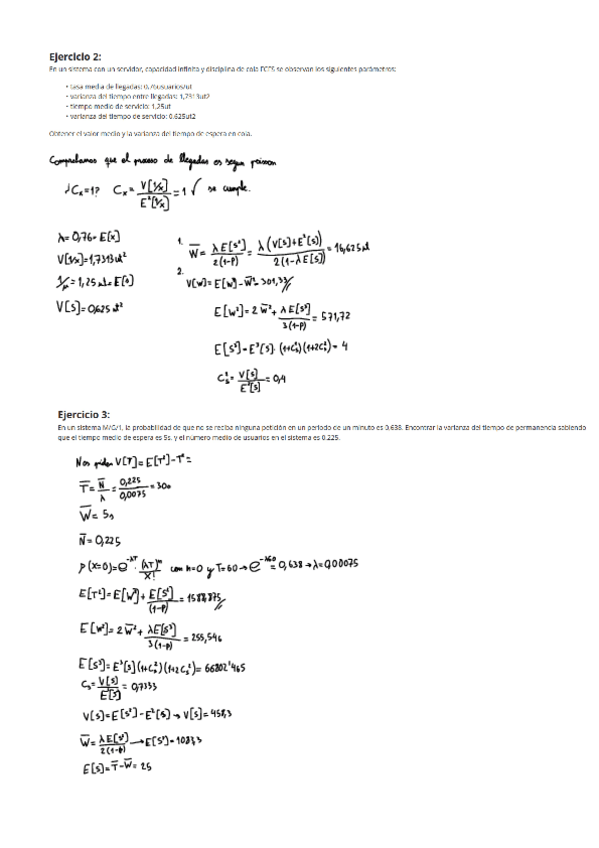 Ejercicio 2:
En un sistema con un servidor, capacidad infinita y disciplina de cola FCFS se observan los siguientes parámetros:
• tasa media de llegadas: 0,76usuarios/ut
• varianza del tiempo entre llegadas: 1,7313ut2
• tiempo medio de servicio: 1,25ut
• varianza del tiempo de servicio: 0.625ut2
Obtener el valor medio y la varianza del tiempo de espera en cola.
Comprobamos que el proceso de llegadas es según poisson
¿Cx=1? Cx = V[1/x] / E²[1/x] = 1 ✓ se cumple.
λ= 0,76 = E[x]
V[1/x]=1,7313ut²
1/μ = 1,25 ut = E[s]
V[s]=0,625 ut²
1. W̄ = λE[s²] / 2(1-ρ) = λ(V[s]+E²[s]) / 2(1-λE[s]) = 16,625ut
2.
V[w]= E[w²]-W̄² = 301,33
E[w²]= 2W̄² + λE[s³] / 3(1-ρ) = 571,72
E[s³]=E³[s]·(1+Cs²)(1+2Cs²)= 4
Cs² = V[s] / E²[s] = 0,4
Ejercicio 3:
En un sistema M/G/1, la probabilidad de que no se reciba ninguna petición en un periodo de un minuto es 0,638. Encontrar la varianza del tiempo de permanencia sabiendo
que el tiempo medio de espera es 5s. y el número medio de usuarios en el sistema es 0.225.
Nos piden V[T]=E[T²]-T̄²=
T̄ = N̄ / λ = 0,225 / 0,0075 = 30
W̄= 5s
N̄= 0,225
P(X=0)=e^-λT · (λT)^n / X! con n=0 y T=60 → e^-λ60 = 0,638 → λ=0,0075
E[T²]=E[w²]+ E[s²] / (1-ρ) =
E[w²]= 2W̄² + λE[s³] / 3(1-ρ) = 255,546
E[s³]=E³[s](1+Cs²)(1+2Cs²)= 66802'465
Cs= V[s] / E²[s] = 0,7333
V[s]=E[s²]-E²[s] → V[s]= 458,3
W̄= λE[s²] / 2(1-ρ) → E[s²]= 1083,3
E[s]= T̄-W̄= 25